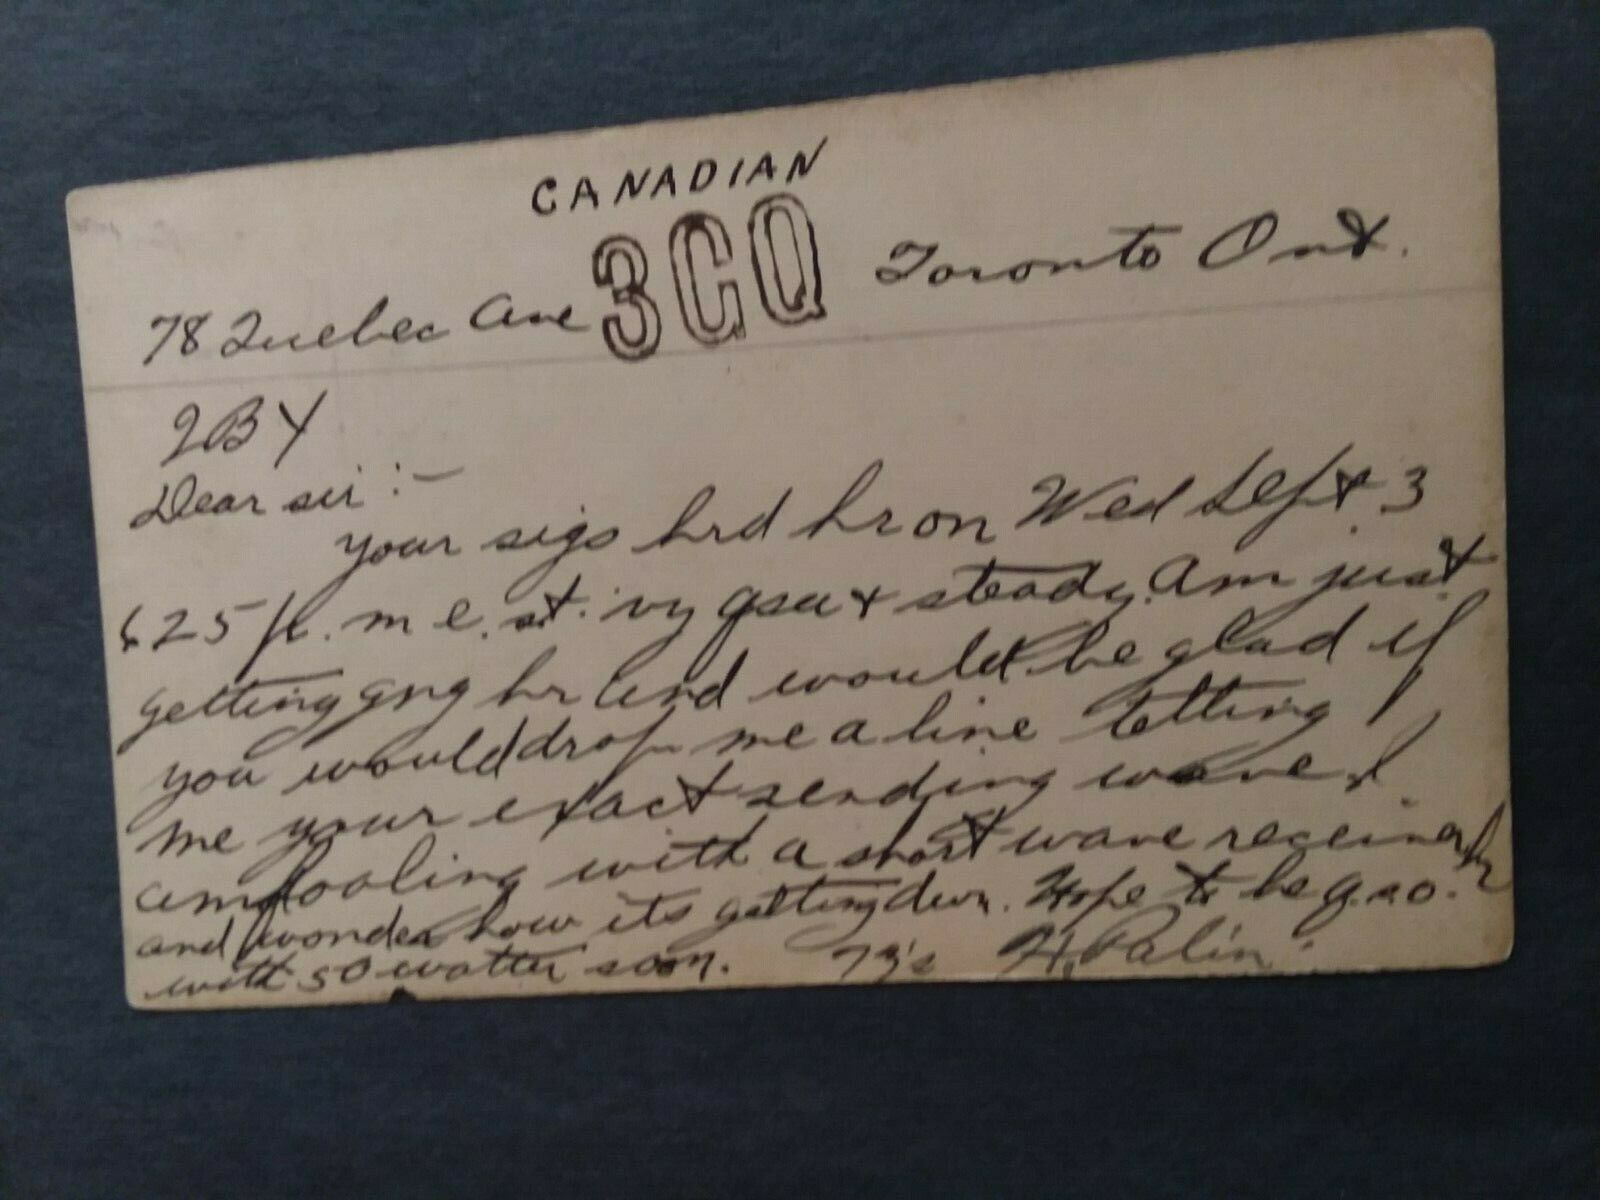 CANADIAN
78 Quebec Ave 3CQ Toronto Ont.
2BY
Dear sir :-
your sigs hrd hr on Wed Sept. 3
625 p. m e. st. vy qsa + steady. Am just
getting gng hr and would be glad if
you would drop me a line telling
me your exact sending wave. I
am fooling with a short wave receiver hr
and wonder how its getting dwn. Hope to be q.s.o.
with 50 watter soon. 73's H. Palin